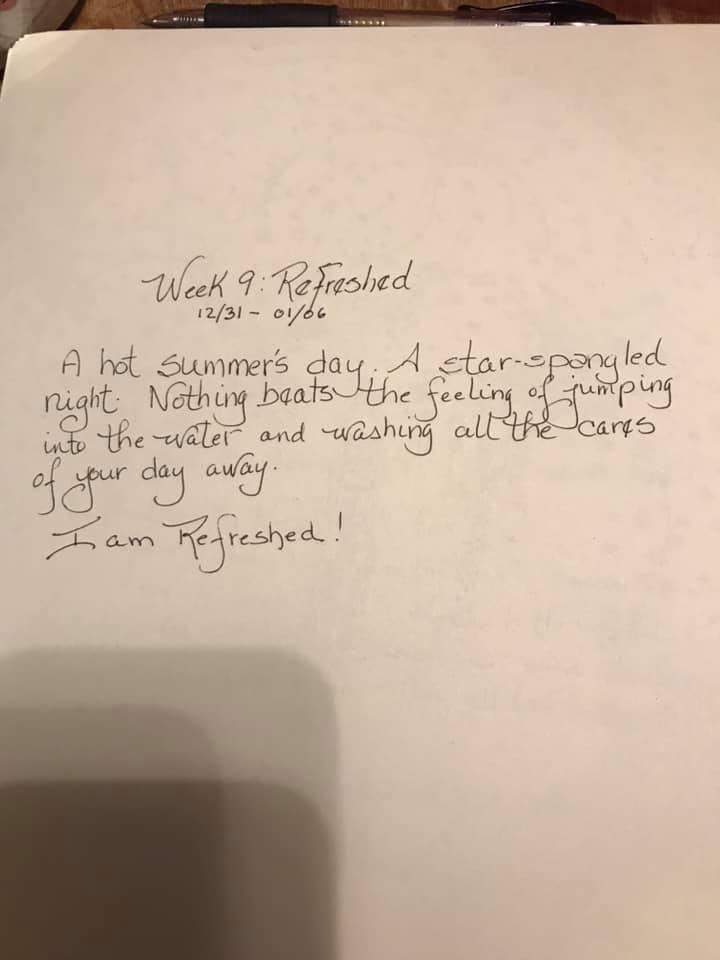 Week 9: Refreshed
12/31 - 01/06
A hot summer's day. A star-spangled
night. Nothing beats the feeling of jumping
into the water and washing all the cares
of your day away.
I am Refreshed!